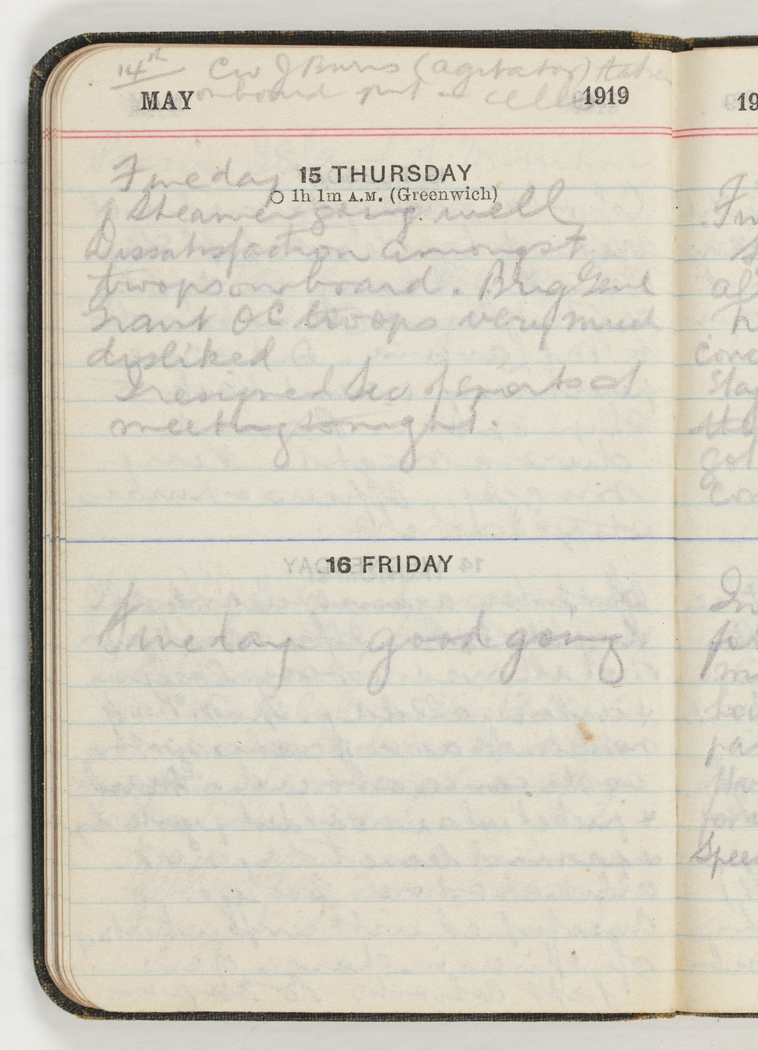 14th Cw J Burns (agitator) taken
MAY onboard put in cells 1919
15 THURSDAY
Fine day
1h 1m A.M. (Greenwich)
& Steamer going well
Dissatisfaction amongst
troops on board. Brig Genl
Grant OC troops very much
disliked
I resigned Sec of Sports at
meeting tonight.
16 FRIDAY
Fine day good going
19
Fin
al
h
conc
Sla
got
con
In
pas
Spee